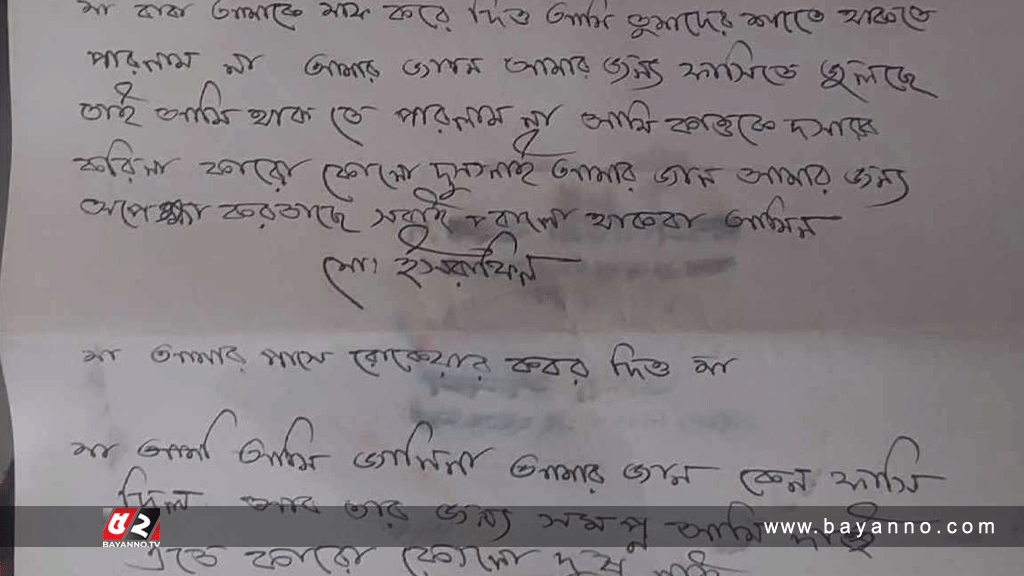 মা বাবা আমাকে মাফ করে দিও আমি তুমাদের সাতে থাকতে
পারলাম না আমার জান আমার জন্য ফাসিতে ঝুলছে
তাই আমি থাক তে পারলাম না আমি কাওকে
করিনা কারো কোনো দুসনাই আমার জান আমার জন্য
অপেক্ষা করতাছে সবাই বালো থাকবা আমিন
মো। ইসরাফিল
মা আমার পাসে রোকেয়ার কবর দিও মা
মা আমি জানিনা আমার জান কেন ফাসি
দিল আর তার জন্য আমি দাই
এতে কারো কোনো দুষ নাই
BAYANNO.TV
www.bayanno.com